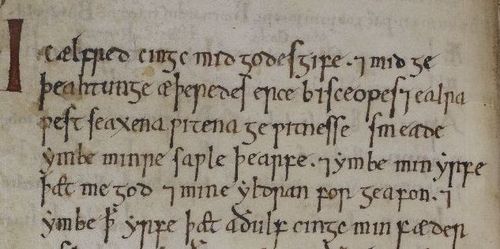 Ic ælfred cinge mid godes gife . ⁊ mid ge
þeahtunge æþeredes erce bisceopes ⁊ ealra
ƿest seaxena ƿitena ge ƿitnesse smeade
ymbe minre saƿle þearfe . ⁊ ymbe min yrfe
þæt me god ⁊ mine yldran for geafon . ⁊
ymbe ꝥ yrfe þæt aðulf cinge min fæder